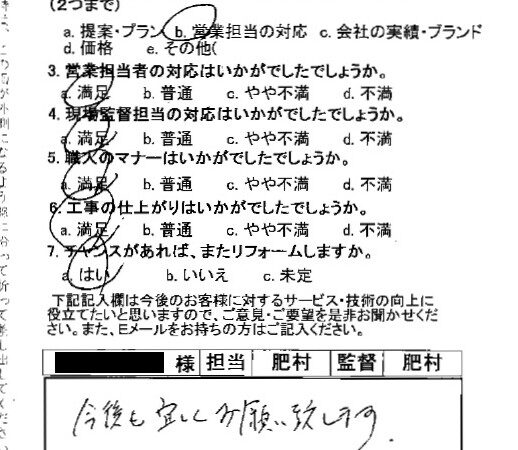 (2つまで)
a. 提案・プラン b. 営業担当の対応 c. 会社の実績・ブランド
d. 価格 e. その他(
3. 営業担当者の対応はいかがでしたでしょうか。
a. 満足 b. 普通 c. やや不満 d. 不満
4. 現場監督担当の対応はいかがでしたでしょうか。
a. 満足 b. 普通 c. やや不満 d. 不満
5. 職人のマナーはいかがでしたでしょうか。
a. 満足 b. 普通 c. やや不満 d. 不満
6. 工事の仕上がりはいかがでしたでしょうか。
a. 満足 b. 普通 c. やや不満 d. 不満
7. チャンスがあれば、またリフォームしますか。
a. はい b. いいえ c. 未定
下記記入欄は今後のお客様に対するサービス・技術の向上に
役立てたいと思いますので、ご意見・ご要望を是非お聞かせくだ
さい。また、Eメールをお持ちの方はご記入ください。
様 担当 肥村 監督 肥村
今後も宜しくお願い致します.